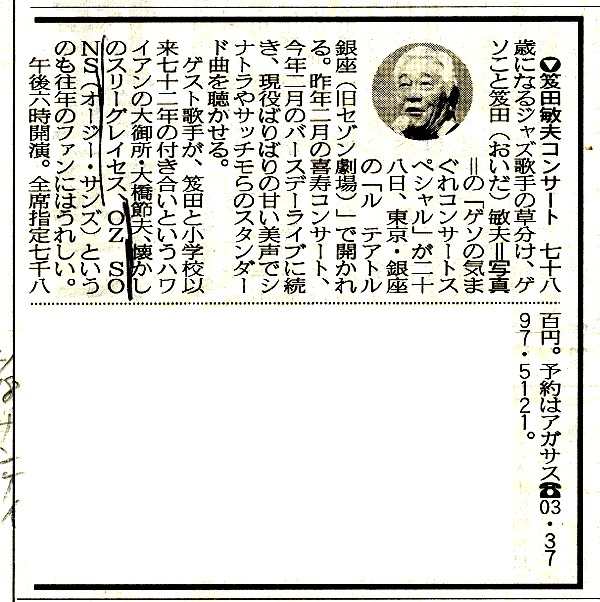 ▼笈田敏夫コンサート　七十八
歳になるジャズ歌手の草分け、ゲ
ソこと笈田（おいだ）敏夫＝写真
＝の「ゲソの気ま
ぐれコンサートス
ペシャル」が二十
八日、東京・銀座
の「ル　テアトル
銀座（旧セゾン劇場）」で開かれ
る。昨年二月の喜寿コンサート、
今年二月のバースデーライブに続
き、現役ばりばりの甘い美声でシ
ナトラやサッチモらのスタンダー
ド曲を聴かせる。
ゲスト歌手が、笈田と小学校以
来七十二年の付き合いというハワ
イアンの大御所・大橋節夫、懐かし
のスリーグレイセス、OZ　SO
NS（オージー・サンズ）という
のも往年のファンにはうれしい。
午後六時開演。全席指定七千八
百円。予約はアガサス☎03・37
97・5121。